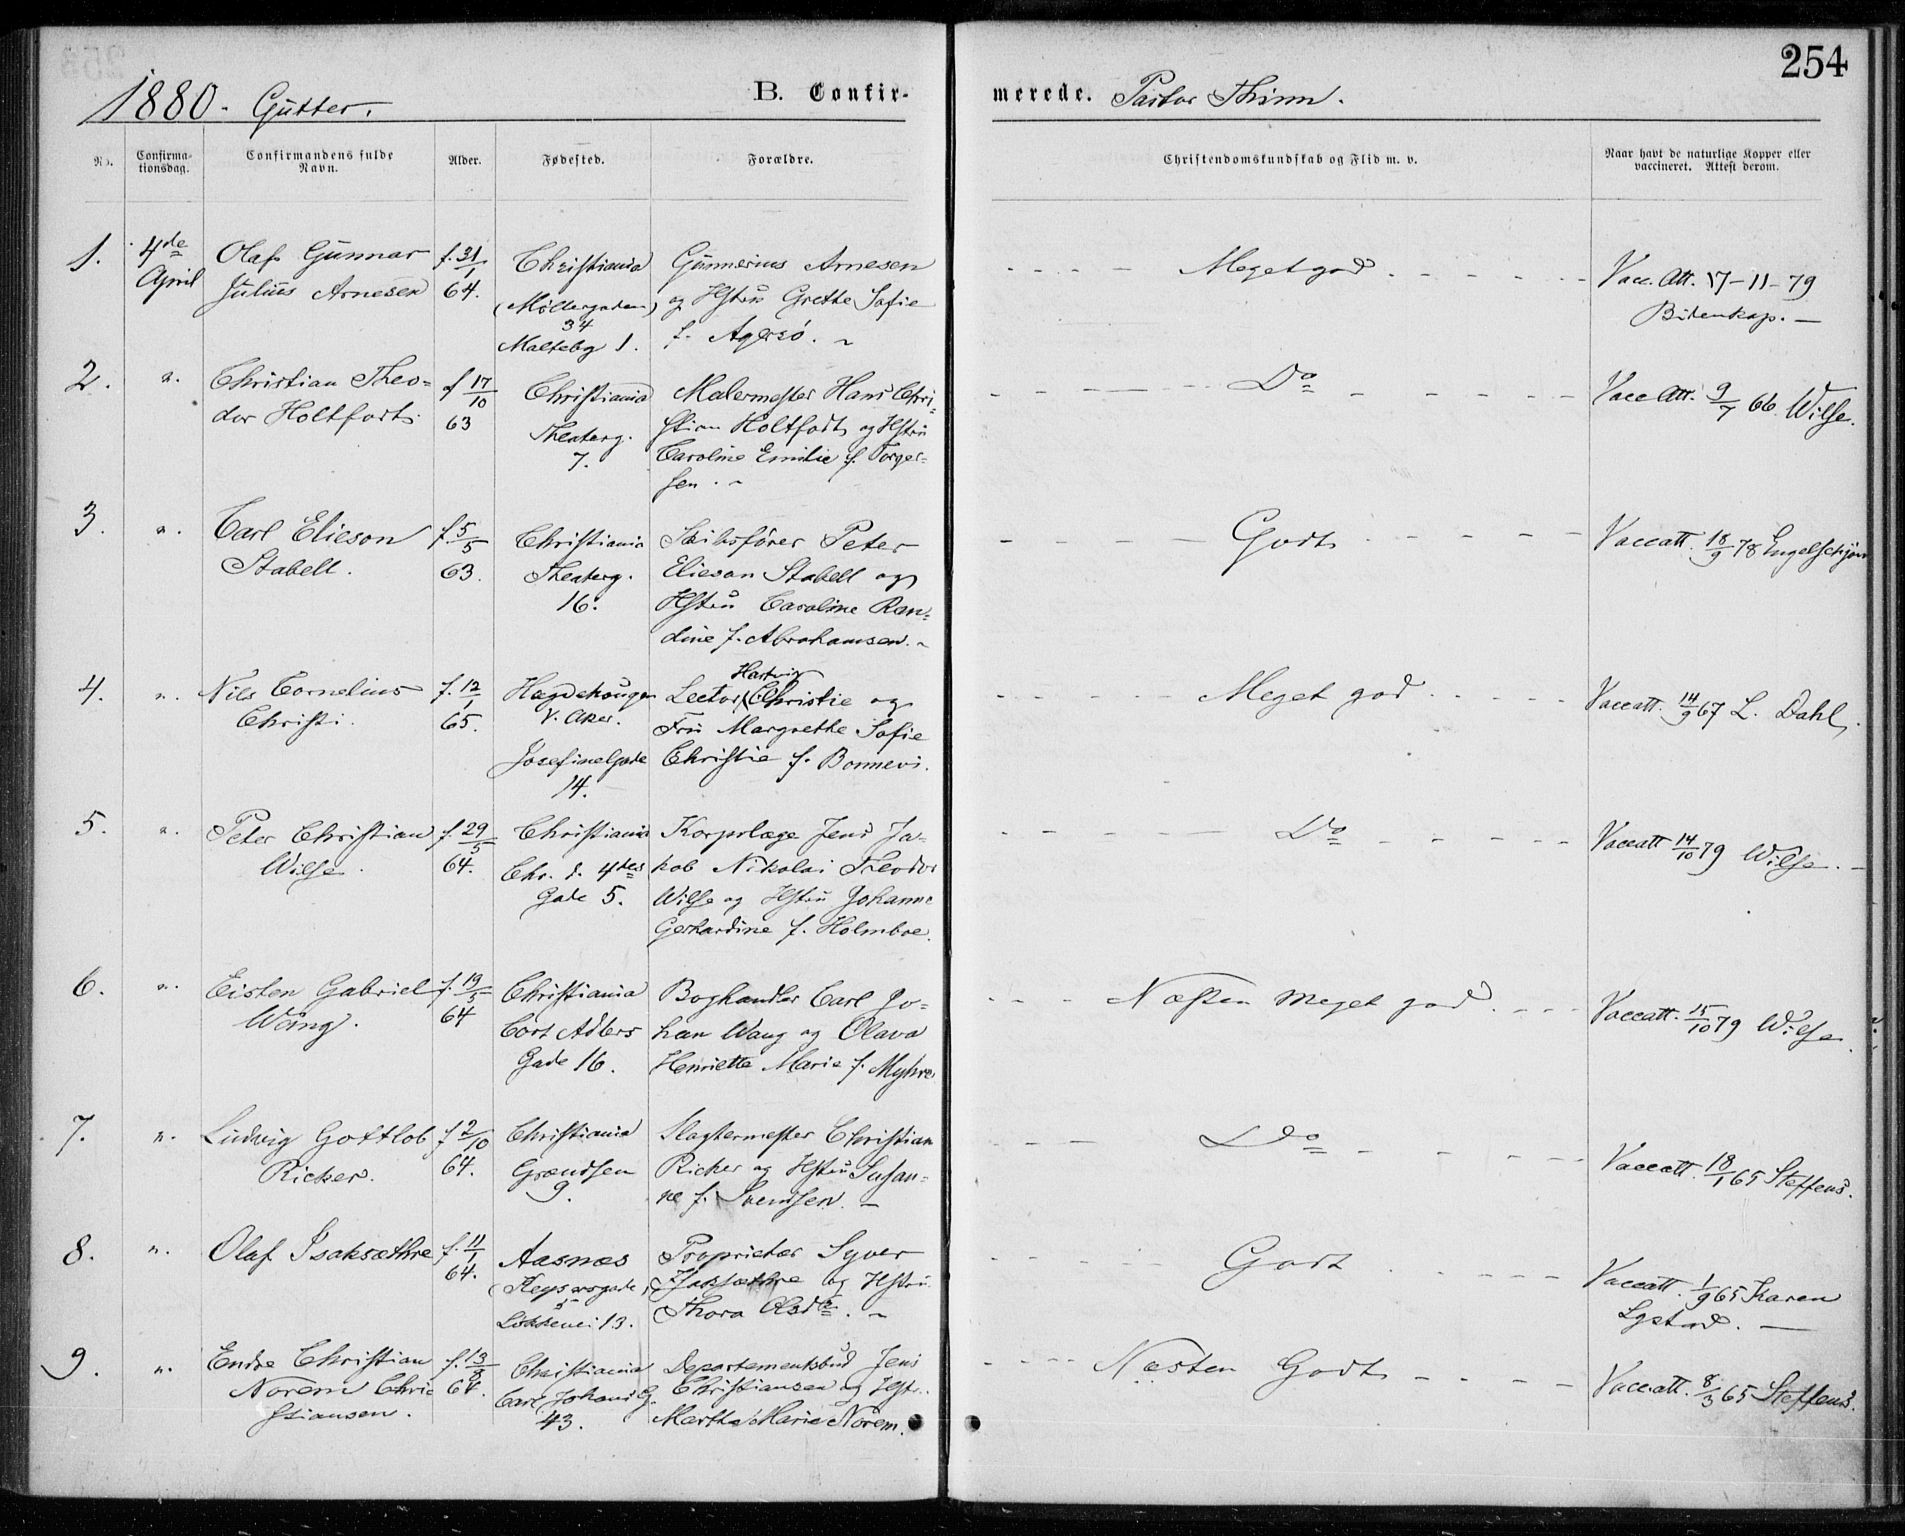 254
1880. Gutter. B. Confir- merede. Pastor Thinn.
No. Confirma- tionsdag. Confirmandens fulde Navn. Alder. Fødested. Forældre. Christendomskundskab og Flid m. v. Naar havt de naturlige Kopper eller vaccineret. Attest derom.
1. 4de April
Olaf Gunnar
Julius Arnesen
f. 31/1
64.
Christiania
(Møllergaden)
34
Maltebg 1.
Gunnerius Arnesen
og Hstru Grethe Sofie
f. Agersø.
Meget god
Vacc. Att. 17-11-79
Bidenkap.
2. "
Christian Theo-
dor Holtfodt
f 17/10
63
Christiania
Theaterg.
7.
Malermester Hans Chri-
stian Holtfodt og Hstru
Caroline Emilie f. Torger-
sen.
Do
Vacc Att. 9/7 66 Wilse.
3. "
Carl Elieson
Stabell.
f. 5/5
63.
Christiania
Theaterg.
16.
Skibsfører Peter
Elieson Stabell og
Hstru Caroline Ran-
dine f. Abrahamsen.
Godt
Vaccatt. 18/9 78 Engelschjøn
4. "
Nils Cornelius
Christi.
f. 12/1
65.
Hægdehougen
V. Aker.
Josefinelgade
14.
Hartvig
Lector Christie og
Fru Margrethe Sofie
Christie f. Bonnevi.
Meget god
Vaccatt. 14/9 67 L. Dahl.
5. "
Peter Christian
Wilse.
f. 29/5
64.
Christiania
Chr. d. 4des
Gade 5.
Korpslæge Jens Ja-
kob Nikolai Theodor
Wilse og Hstru Johanne
Gerhardine f. Holmboe.
Do
Vaccatt 14/10 79 Wilse.
6. "
Eisten Gabriel
Wang.
f. 19/5
64
Christiania
Cort Adlers
Gade 16.
Boghandler Carl Jo-
han Wang og Olava
Henriette Marie f. Myhre
Næsten meget god
Vaccatt. 15/10 79 Wilse
7. "
Ludvig Gottlob
Ricker.
f 2/10
64.
Christiania
Grændsen
9.
Slagtermester Christian
Ricker og Hstru Susan-
ne f. Svendsen.
Do
Vaccatt. 18/1 65 Steffens.
8. "
Olaf Isaksæthre
f. 11/1
64.
Aasnæs
(Keysersgade)
5
Løkkevei 13.
Proprietær Syver
Isaksæthre og Hstru
Thora Olsdtr.
Godt
Vaccatt. 1/9 65 Karen
Lystad.
9. "
Endre Christian
Norem Chri
stiansen.
f. 13/8
64.
Christiania
Carl Johans G.
43.
Departementsbud Jens
Christiansen og Hstr.
Martha Marie Norem.
Næsten Godt
Vaccatt. 8/3 65 Steffens.